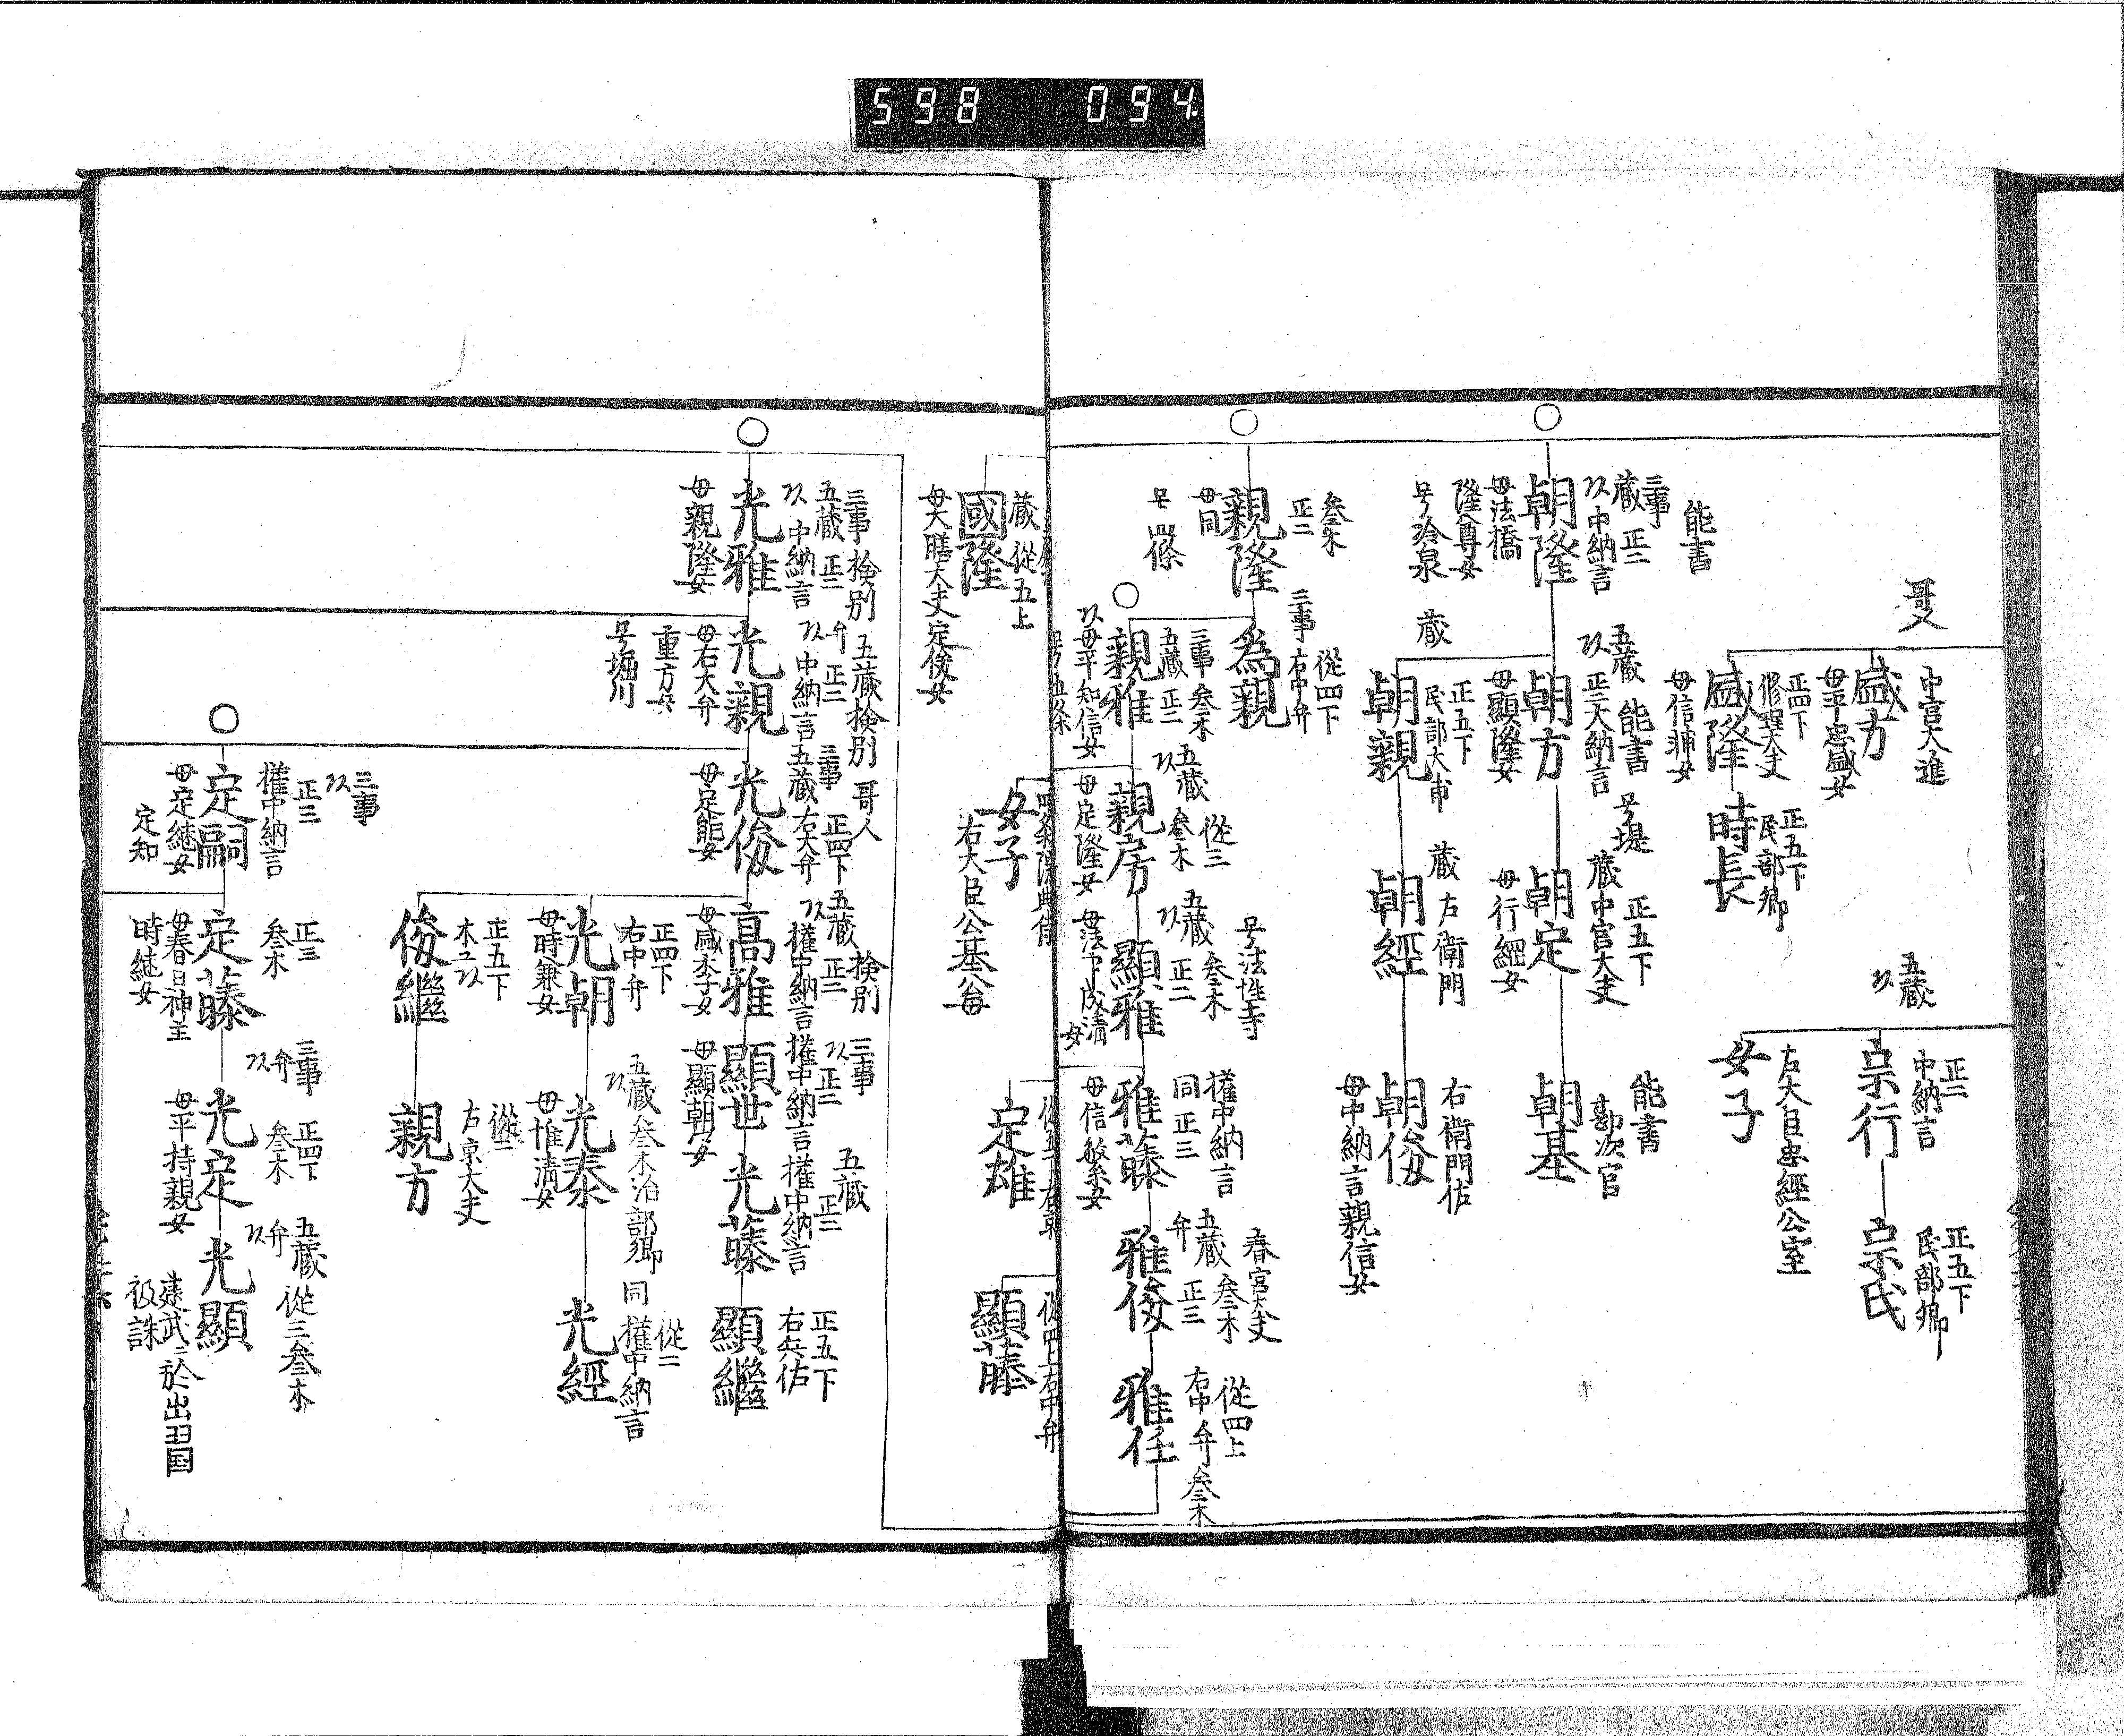 598 094
哥人
中宮大進
盛方
母平忠盛女
正四下
修理大夫
盛隆
母信神女
正五下
民部卿
時長
五蔵
正二
中納言
宗行
正五下
民部卿
宗氏
左大臣忠經公室
女子
能書
三事
蔵 正二
中納言
朝隆
母法橋
隆尊女
号冷泉
五蔵 能書 号堤
正二大納言
朝方
母顯隆女
正五下
蔵中宮大夫
朝定
母行經女
能書
勘次官
朝基
蔵
正五下
民部大甫
朝親
蔵 左衛門
朝經
右衛門佐
朝俊
母中納言親信女
叅木
正二
親隆
母同
号四條
三事 従四下
右中弁
為親
三事 叅木
五蔵 正二
親雅
母平知信女
号五条
五蔵 従三
叅木
親房
母定隆女
号法性寺
五蔵 叅木
正二
顯雅
母法下成清女
權中納言
同 正三
雅藤
母信繁女
春宮大夫
五蔵 叅木
弁 正三
雅俊
従四上
右中弁 叅木
雅任
蔵 從五上
國隆
母大膳大夫定俊女
女子
右大臣公基公母
定雄
従四上右中弁
顯藤
三事 検別
五蔵 正二
中納言
光雅
母親隆女
五蔵検別
弁 正二
中納言
光親
母右大弁
重方女
号堀川
哥人
三事 正四下
五蔵右大弁
光俊
母定能女
五蔵 検別
正二
權中納言
高雅
三事
正二
權中納言
顯世
母顯朝女
五蔵
正二
權中納言
光藤
正五下
右兵佐
顯繼
正四下
右中弁
光朝
母時兼女
五蔵叅木治部卿
光泰
母惟清女
同 従二
權中納言
光經
正五下
木工
俊繼
従二
左京大夫
親方
三事
正三
權中納言
定嗣
母定継女
定知
正三
叅木
定藤
母春日神主
時継女
三事 正四下
弁 叅木
光定
母平持親女
五蔵従三叅木
弁
光顯
建武二於出羽国
被誅